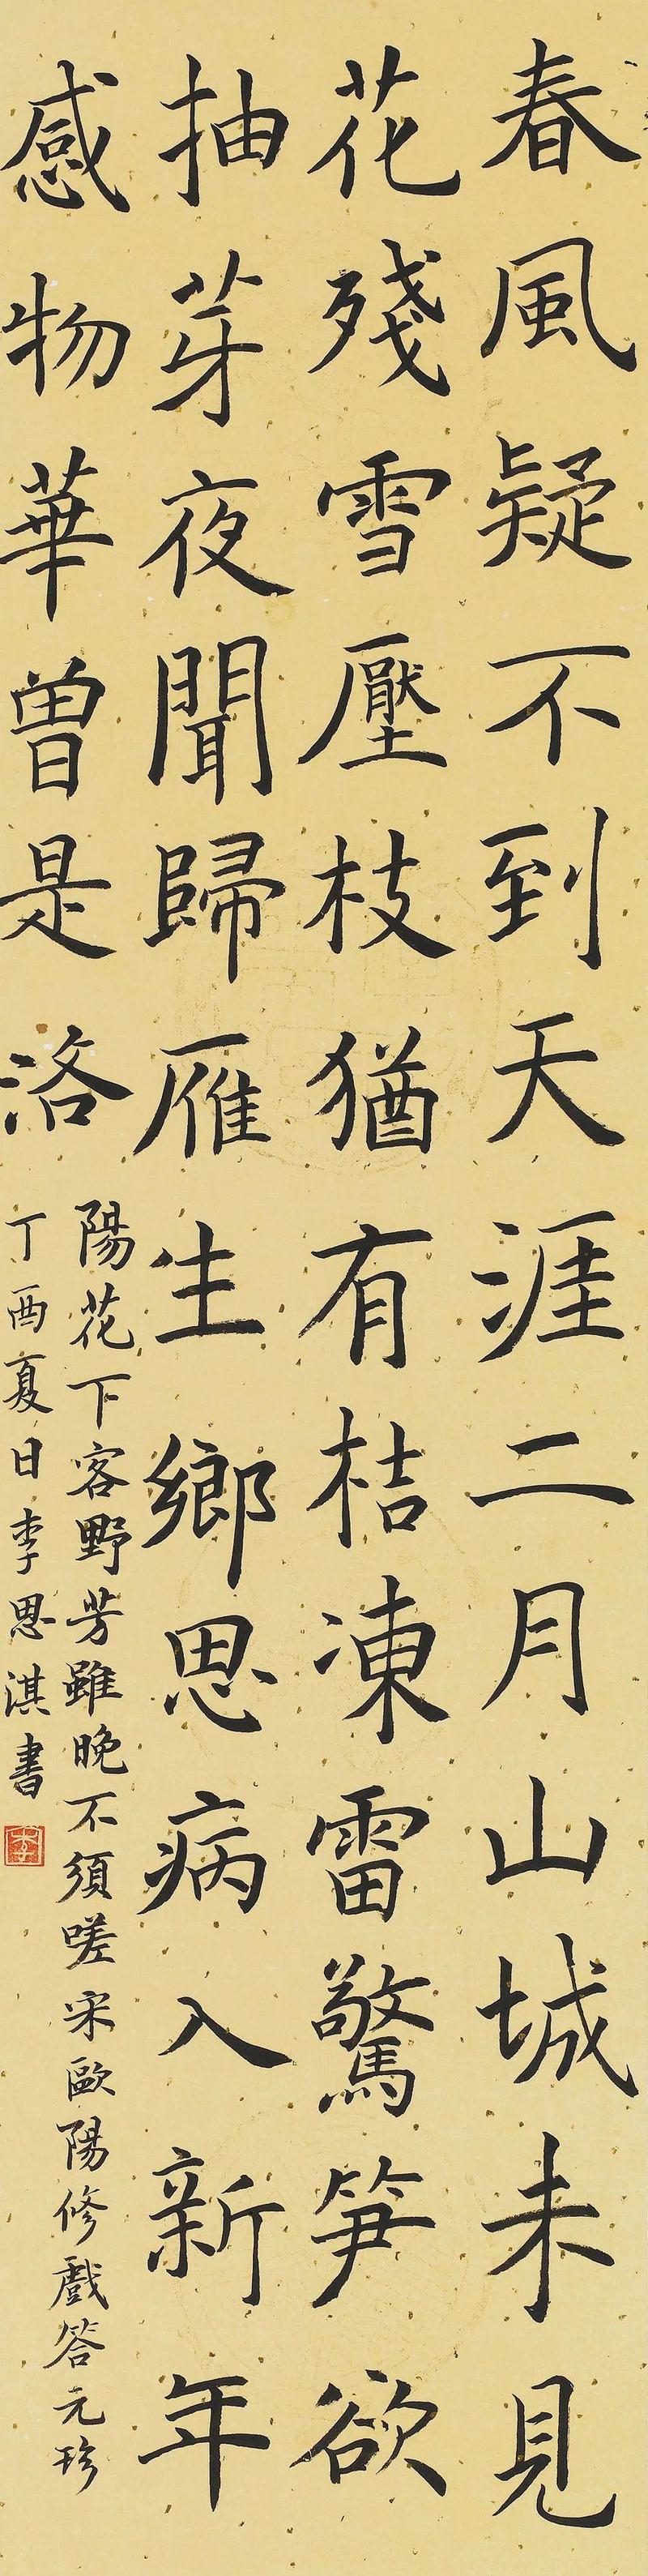 春風疑不到天涯二月山城未見
花殘雪壓枝猶有桔凍雷驚笋欲
抽芽夜聞歸雁生鄉思病入新年
感物華曾是洛
陽花下客野芳雖晚不須嗟宋歐陽修戲答元珍
丁酉夏日李思淇書
李